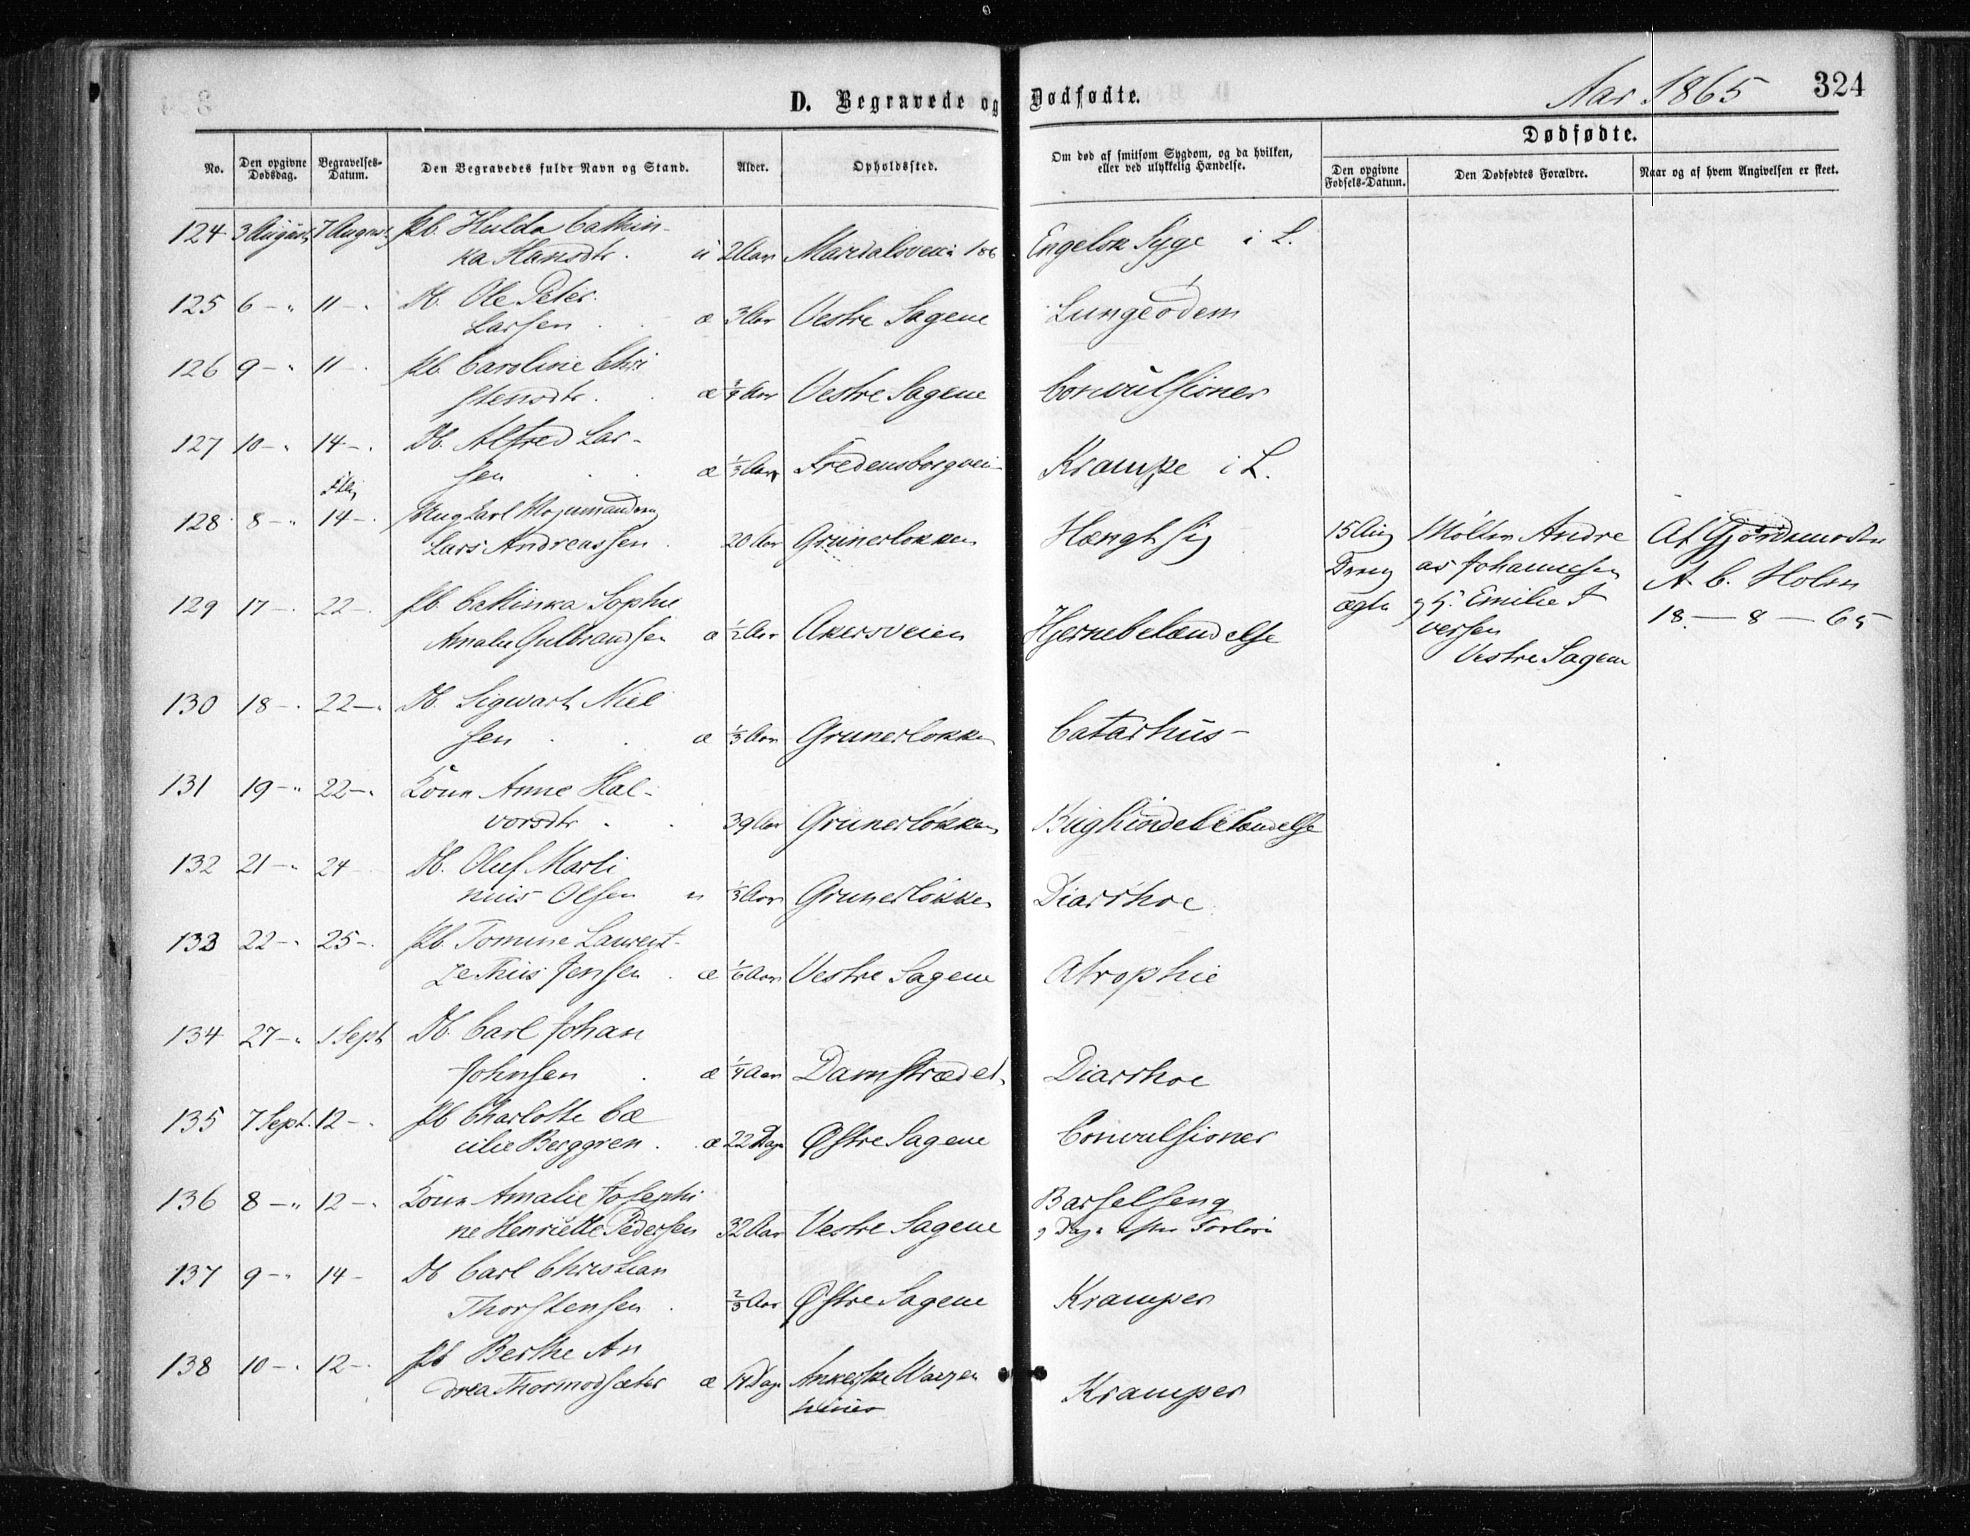 D. Begravede og Dødfødte.
Aar 1865
324
No.
Den opgivne Dødsdag.
Begravelses-Datum.
Den Begravedes fulde Navn og Stand.
Alder.
Opholdssted.
Om død af smitsom Sygdom, og da hvilken, eller ved ulykkelig Hændelse.
Dødfødte.
Den opgivne Fødsels-Datum.
Den Dødfødtes Forældre.
Naar og af hvem Angivelsen er skeet.
124 3 August 7 August Pb. Hulda Cathin-
ka Hansdtr. u 2 Aar Maridalsveien 186 Engelsk Syge i L.
125 6 - " 11 - Db. Ole Peter
Larsen æ 3 Aar Vestre Sagene Lungeødem
126 9 - " 11 - Pb. Caroline Chri
stensdtr. æ Aar Vestre Sagene Convulsioner
127 10 - " 14 - Db. Alfred Lar-
sen æ 1/3 Aar Fredensborgvei Krampe i L.
128 8 - " 14 - Ung Carl
Lars Andreassen 20 Aar Grünerløkken Hængt sig
15 Aug Andre Af Gjordemoder
Dreng as Johannesen A. C. Holm
ægte og H. Emilie I 18 - 8 - 65
versen
Vestre Sagene
129 17 - 22 - Pb. Cathinka Sophie
Amalie Gulbrandsen æ 1/2 Aar Akersveien Hjernebetændelse
130 18 - 22 - " Db. Sigwart Niel
sen æ 1/3 Aar Grünerløkken Catarhus -
131 19 - " 22 - " Kone Anne Hal-
vorsdtr 39 Aar Grünerløkken Bughindebetændelse
132 21 - " 24 Db. Oluf Marti
nius Olsen u 1/3 Aar Grünerløkken Diarrhoe
133 22 - " 25 - Pb. Tomine Laurent-
ze Jensen æ 1/6 Aar Vestre Sagene Atrophie
134 27 - " 1 Sept Db. Carl Johan
Johnsen æ 1/4 Aar Damstrædet Diarrhoe
135 7 Sept. 12 - Pb Charlotte Cæ
cilie Berggren æ 22 Dage Østre Sagene Convulsioner
136 8 - " 12 - " Kone Amalie Josephi
ne Henriette Pedersen 32 Aar Vestre Sagene Barselseng
9 Dage efter Forløsn
137 9 - " 14 - Db Carl Christian
Thorstensen 2/3 Aar Østre Sagene Kramper
138 10 - " 12 - Pb Berthe An
drea Thormodsæter æ 14 Dage Ankerske Waizen
huus Kramper